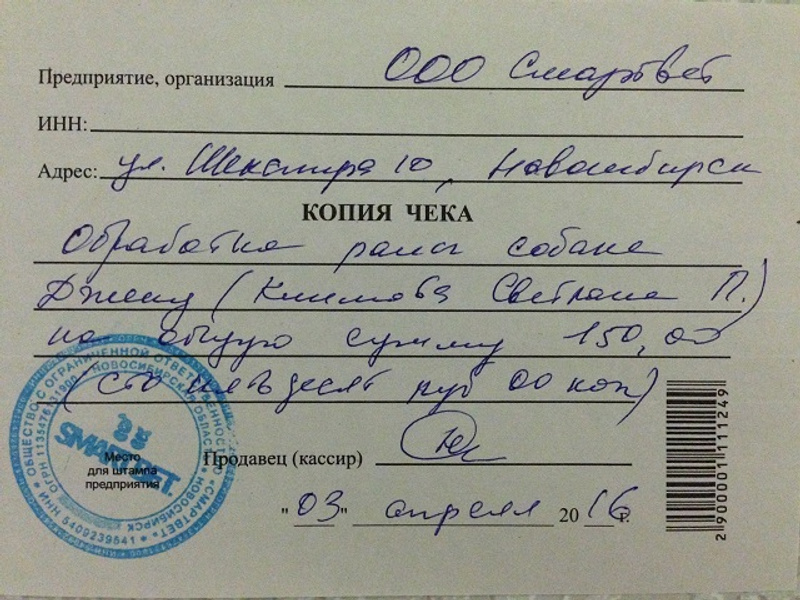 Предприятие, организация ООО Смартвет
ИНН:
Адрес: ул. Шекспира 10, Новосибирск
КОПИЯ ЧЕКА
Обработка раны собаке
Джеку (Климова Светлана П.)
на общую сумму 150,00
(сто пятьдесят руб 00 коп)
Продавец (кассир)
Место
для штампа
предприятия
"03" апреля 2016 г.
ОБЩЕСТВО С ОГРАНИЧЕННОЙ ОТВЕТСТВЕННОСТЬЮ «СМАРТВЕТ»
НОВОСИБИРСКАЯ ОБЛАСТЬ
НОВОСИБИРСК
SMARTVET
2 900001 111249